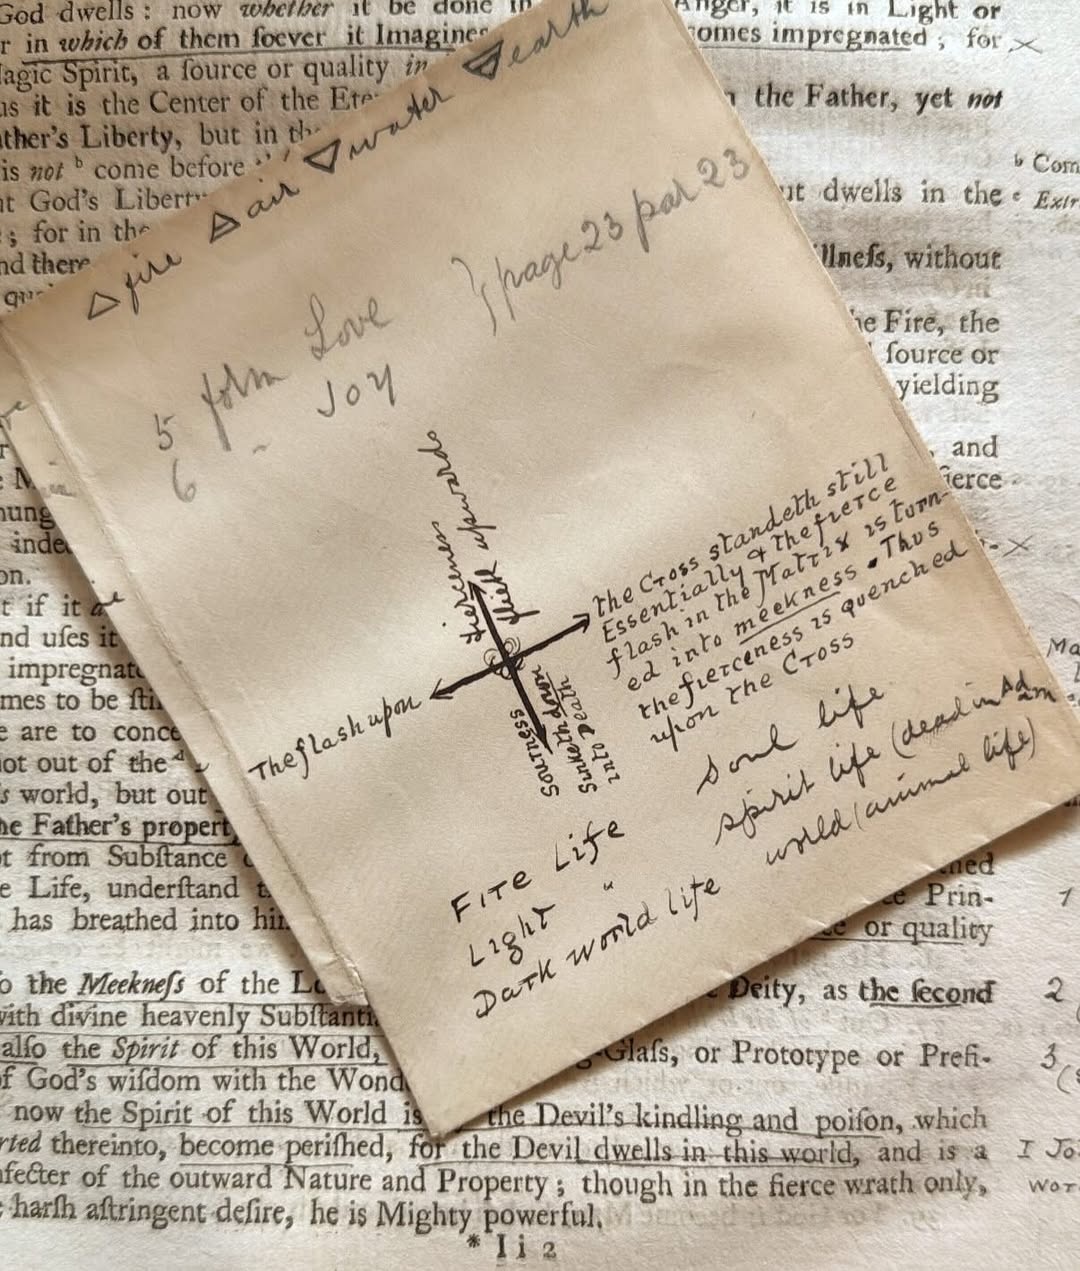 God dwells: now whether it be done in
Anger, it is in Light or
r in which of them soever it Imagines
comes impregnated; for
Magic Spirit, a source or quality in
us it is the Center of the Eter
n the Father, yet not
ather's Liberty, but in th
is not ᵇ come before
ᵇ Com
at God's Liberty
ut dwells in the ᶜ Extr
; for in the
nd there
illness, without
he Fire, the
source or
yielding
, and
fierce
hung
inde
on.
t if it
nd uses it
impregnate
mes to be sti
e are to conce
not out of the ᵈ
s world, but out
he Father's property
ot from Substance
e Life, understand t
has breathed into him.
Prin-
1
or quality
o the Meekness of the L
Deity, as the second
2
with divine heavenly Substanti
also the Spirit of this World,
g-Glass, or Prototype or Prefi-
3
of God's wisdom with the Wond
now the Spirit of this World is
the Devil's kindling and poison, which
rted thereinto, become perished, for the Devil dwells in this world, and is a
I Jo
nfecter of the outward Nature and Property; though in the fierce wrath only,
wor
harsh astringent desire, he is Mighty powerful.
* I i 2
△ fire 🜁 air ▽ water 🜃 earth
5 form Love } page 23 par 23
6 " Joy
fierceness
flieth upwards
The flash upon
the Cross standeth still
Essentially & the fierce
flash in the Matrix is turn-
ed into meekness. Thus
the fierceness is quenched
upon the Cross
Sourness
Sinketh down
into Death
Fire Life
soul life
Light "
spirit life (dead in Adam
Dark world life
world (animal life)